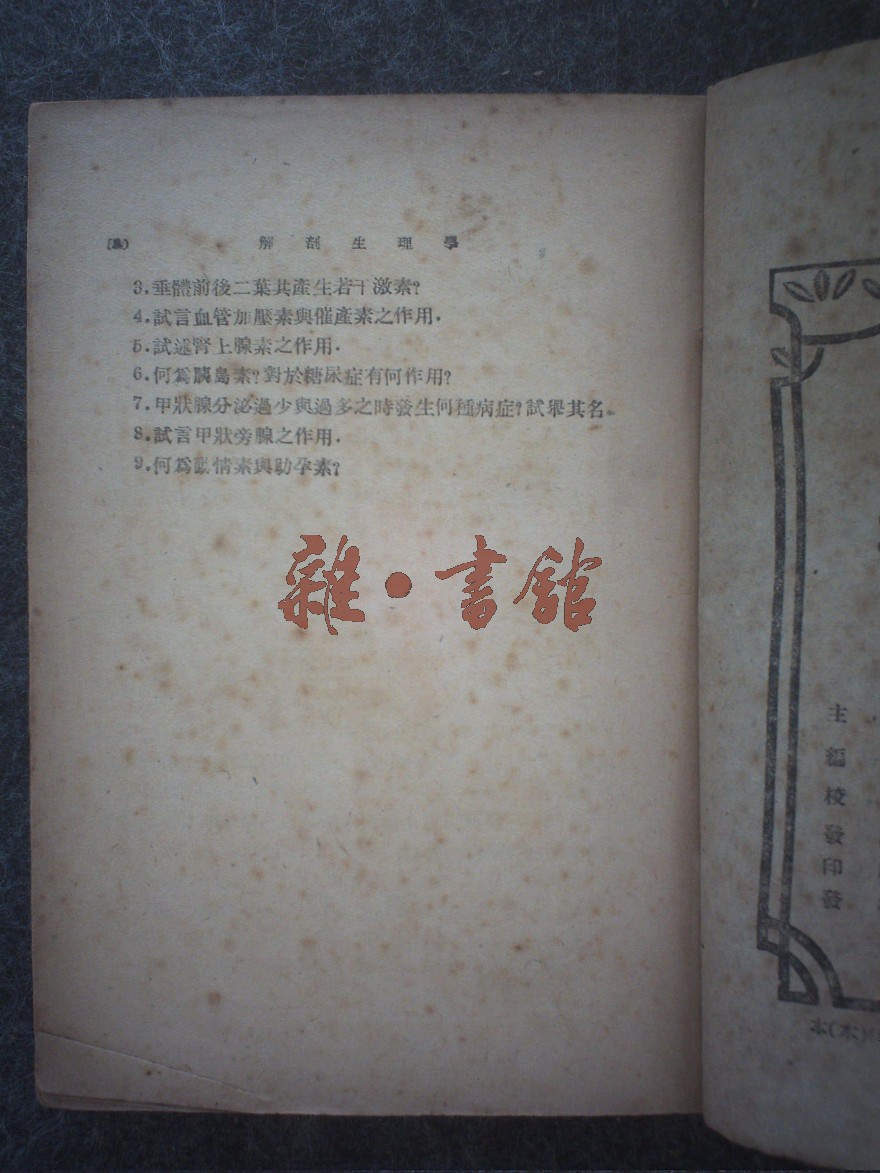 解剖生理學
3.垂體前後二葉共產生若干激素?
4.試言血管加壓素與催產素之作用.
5.試述腎上腺素之作用.
6.何爲胰島素?對於糖尿症有何作用?
7.甲狀腺分泌過少與過多之時發生何種病症?試舉其名.
8.試言甲狀旁腺之作用.
9.何爲動情素與助孕素?
雜·書館
主
編
校
發
印
發